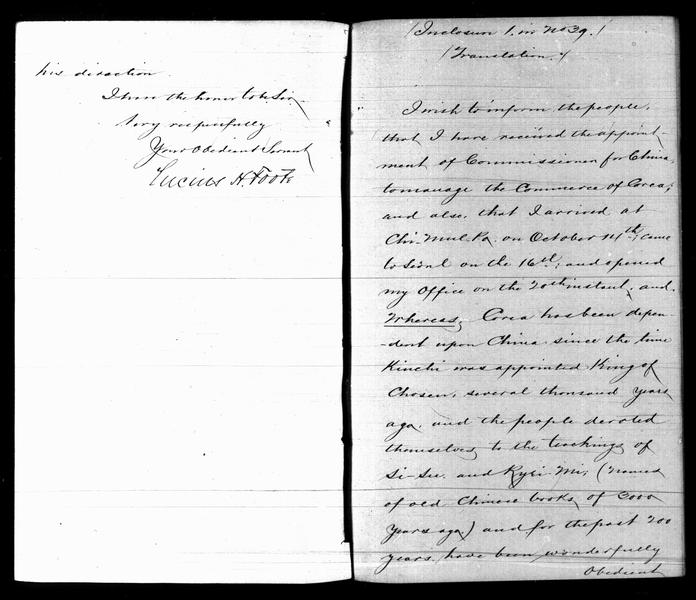 his direction.
I have the honor to be Sir
Very respectfully
Your Obedient Servant
Lucius H. Foote
(Inclosure 1. in No 39.)
(Translation.)
I wish to inform the people,
that I have received the appoint-
ment of Commissioner for China,
to manage the Commerce of Corea;
and also, that I arrived at
on October 14th, came
to Söul on the 16th; and opened
my Office on the 20th instant, and,
Whereas, Corea has been depen-
-dent upon China since the time
Kinchi was appointed King of
Chosen, several thousand years
ago, and the people devoted
themselves to the teachings of
Si-Su. and (Names
of old Chinese books, of 3000
years ago) and for the past 200
years, have been wonderfully
Obedient